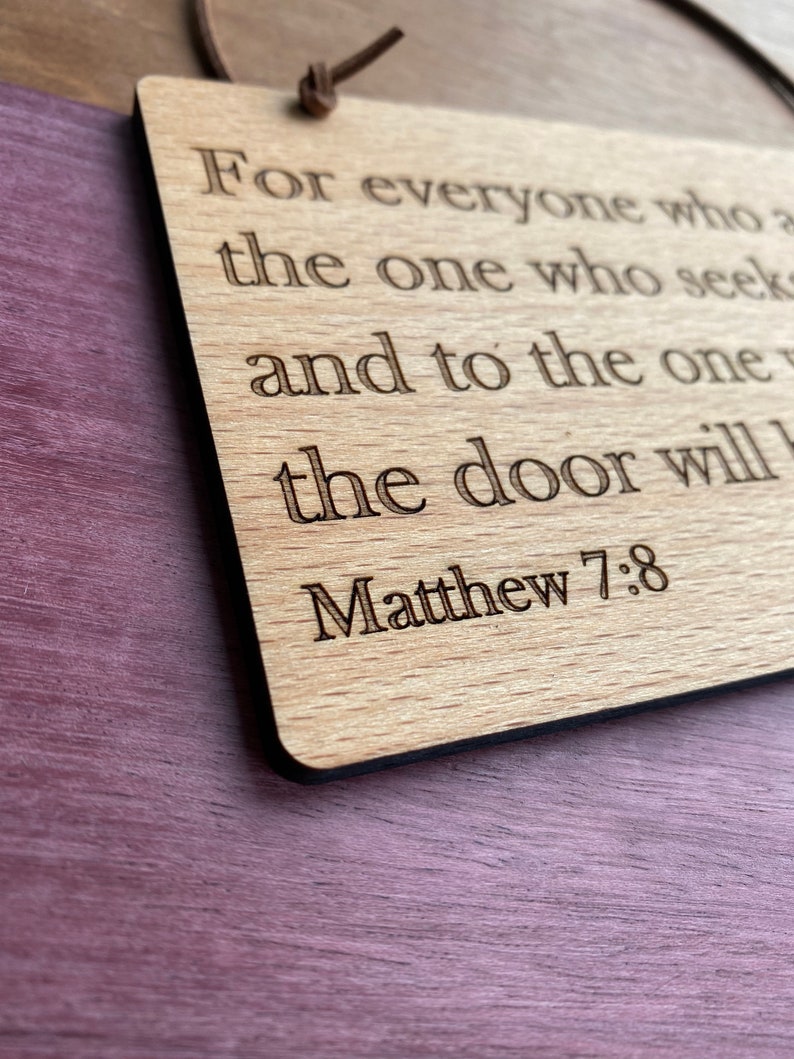 For everyone who a
the one who seeks
and to the one
the door will
Matthew 7:8